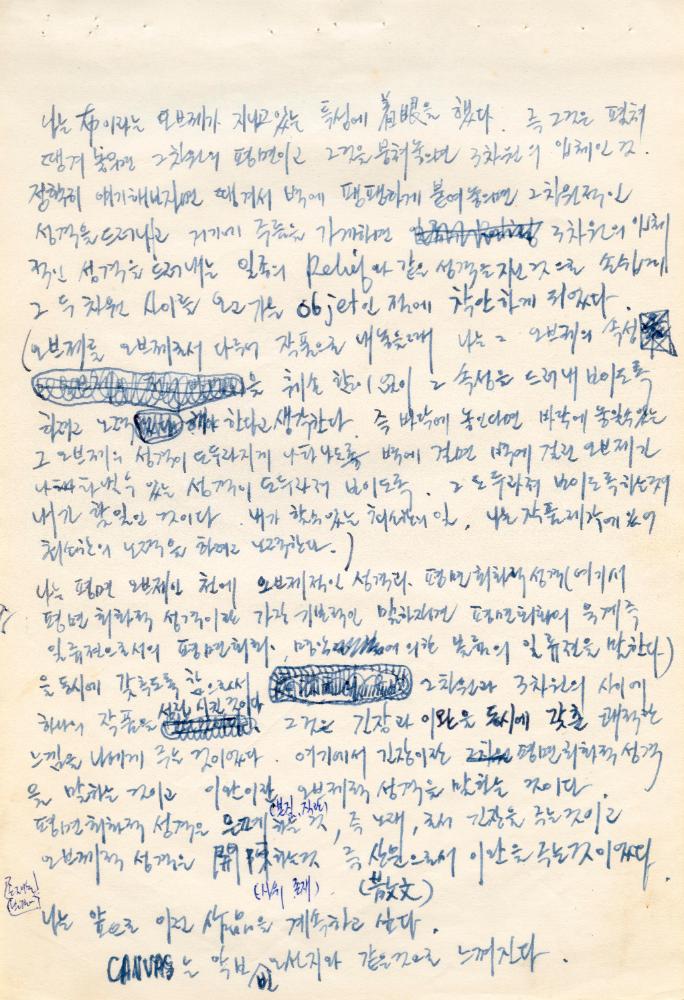 나는 布이라는 오브제가 지니고 있는 특성에 着眼을 했다. 즉 그것은 펼쳐
땡겨 놓으면 2차원의 평면이고 그것을 뭉쳐놓으면 3차원의 입체인 것.
정확히 얘기해보자면 땡겨서 벽에 팽팽하게 붙여놓으면 2차원적인
성격을 드러내고 거기에 주름을 가게하면 3차원의 입체
적인 성격을 드러내는 일종의 Relief와 같은 성격을 지닌 것으로 손쉽게
그 두 차원 사이를 오고가는 objet인 점에 착안하게 되었다.
(오브제를 오브제로서 다루어 작품으로 내놓을때 나는 그 오브제의 속성
을 훼손 함이 없이 그 속성을 드러내 보이도록
하려고 노력 해야 한다고 생각한다. 즉 바닥에 놓인다면 바닥에 놓일수있는
그 오브제의 성격이 도두라지게 나타나도록 벽에 걸면 벽에 걸린 오브제가
나타낼수 있는 성격이 도두라져 보이도록. 그 도두라져 보이도록하는것이
내가 할일인 것이다. 내가 할수있는 최소한의 일, 나는 작품제작에 있어
최소한의 노력을 하려고 노력한다.)
나는 평면 오브제인 천에 오브제적인 성격과 평면회화적 성격(여기서
평면회화적 성격이란 가장 기본적인 말하자면 평면회화의 욕계측
일류전으로서의 평면회화, 에 의한 볼륨의 일류전을 말한다)
을 동시에 갖추도록 함으로써 2차원과 3차원의 사이에
하나의 작품을 성립시킨 것이다. 그것은 긴장과 이완을 동시에 갖춘 쾌적한
느낌을 나에게 주는 것이였다. 여기에서 긴장이란 평면회화적 성격
을 말하는 것이고 이완이란 오브제적 성격을 말하는 것이다.
평면회화적 성격은 은폐하는 것, 즉 노래, 로서 긴장을 주는것이고
오브제적 성격은 開陳하는것 즉 산문으로써 이완을 주는것이였다.
(散文)
나는 앞으로 이런 작품을 계속하고 싶다.
CANVAS는 악보 오선지와 같은것으로 느껴진다.